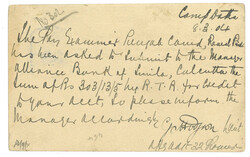 Camp Datta
8-3-04
The Pay Examiner Punjab Comd, Rawal Pindi
has been asked to remit to the Manager
Alliance Bank of Simla, Calcutta the
sum of Rs 303/13/5 by R.T.R. for credit
to your acct, so please inform the
Manager accordingly.
Lieut
Adjutant 22